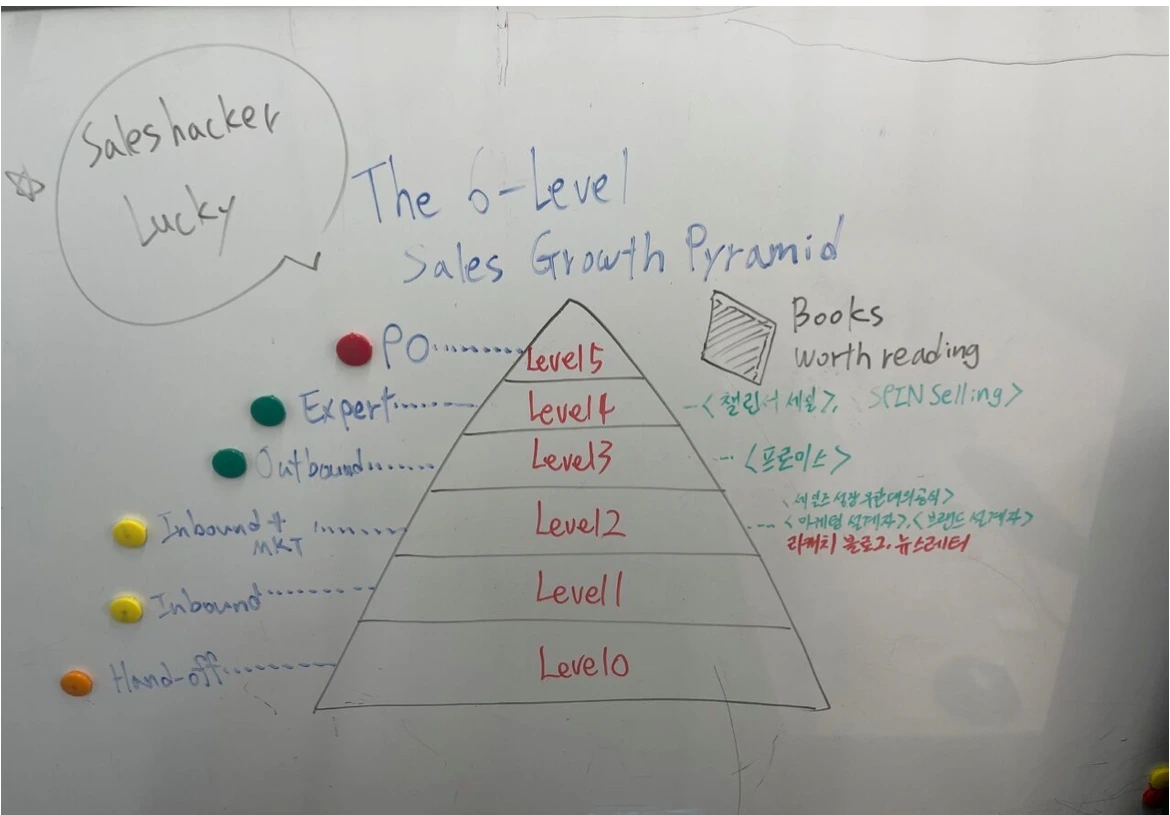 Saleshacker
Lucky
The 6-Level
Sales Growth Pyramid
Books
worth reading
PO
Level5
Expert
Level4
<챌린저 세일>, SPIN Selling>
Outbound
Level3
<프로미스>
Inbound +
MKT
Level2
<세일즈 성장 무한대의 공식>
<마케팅 설계자>, <브랜드 설계자>
리캐치 블로그, 뉴스레터
Inbound
Level1
Hand-off
Level0